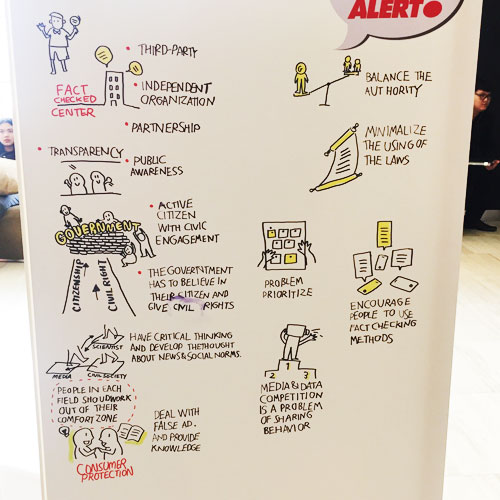 ALERT
THIRD-PARTY
FACT
CHECKED
CENTER
INDEPENDENT
ORGANIZATION
PARTNERSHIP
TRANSPARENCY
PUBLIC
AWARENESS
ACTIVE
CITIZEN
WITH CIVIC
ENGAGEMENT
GOVERNMENT
CITIZENSHIP
CIVIL RIGHT
THE GOVERTNMENT
HAS TO BELIEVE IN
THEIR CITIZEN AND
GIVE CIVIL RIGHTS
SCIENTIST
MEDIA
CIVIL SOCIETY
HAVE CRITICAL THINKING
AND DEVELOP THE THOUGHT
ABOUT NEWS & SOCIAL NORMS.
PEOPLE IN EACH
FIELD SHOUD WORK
OUT OF THEIR
COMFORT ZONE
DEAL WITH
FALSE AD.
AND PROVIDE
KNOWLEDGE
CONSUMER
PROTECTION
BALANCE THE
AUTHORITY
MINIMALIZE
THE USING OF
THE LAWS
PROBLEM
PRIORITIZE
ENCOURAGE
PEOPLE TO USE
FACT CHECKING
METHODS
2 1 3
MEDIA & DATA
COMPETITION
IS A PROBLEM
OF SHARING
BEHAVIOR